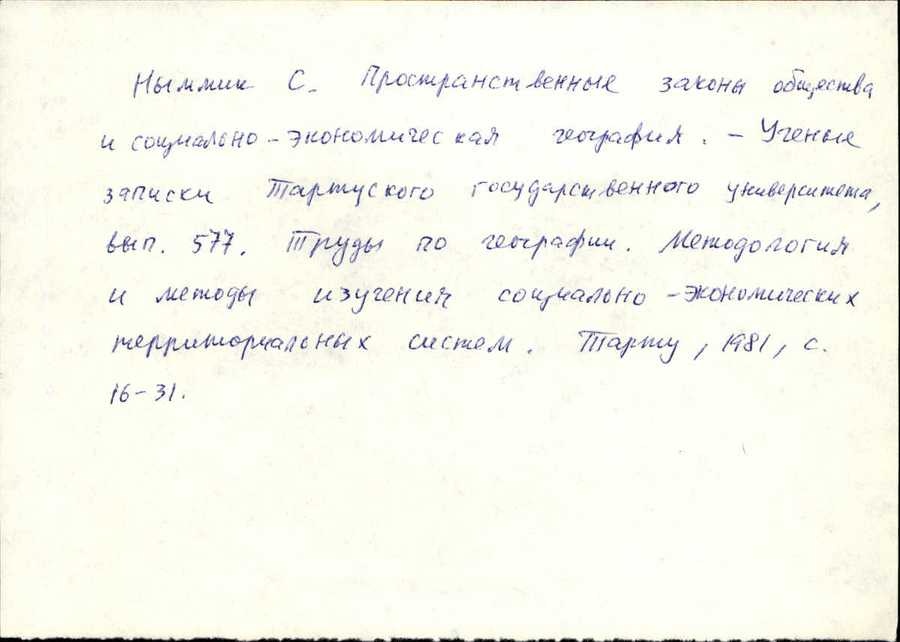 Ныммик С. Пространственные законы общества
и социально-экономическая география. - Ученые
записки Тартуского государственного университета,
вып. 577. Труды по географии. Методология
и методы изучения социально-экономических
территориальных систем. Тарту, 1981, с.
16-31.